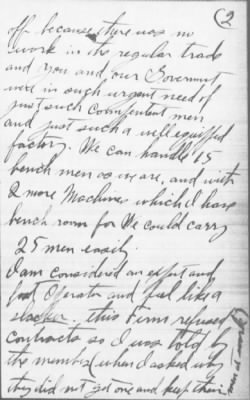 (2
off because there was no
work in the regular trade
and you and our Government
were in such urgent need of
just such competent men
and just such a well equipped
factory. We can handle 15
bench men as we are, and with
2 more Machines which I have
bench room for We could carry
25 men easily.
I am considered an expert and
fast Operator and feel like a
slacker. this Firm refused
contracts so I was told by
the member (when I asked why
they did not get one and keep their
men I mean)